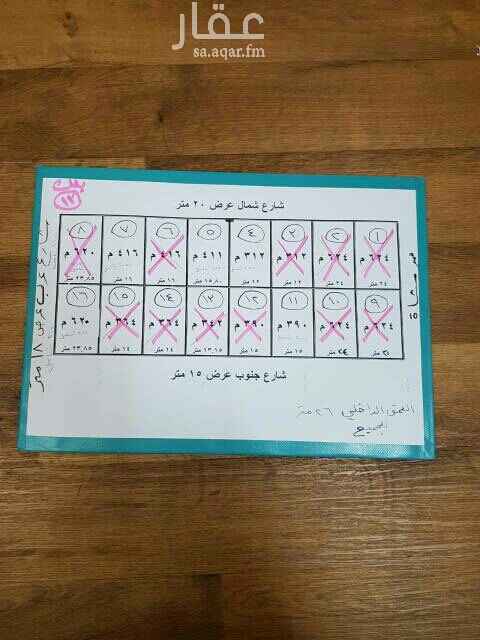 عقار
sa.aqar.fm
بلك
١٧
شارع شمال عرض ٢٠ متر
٨ ٧ ٦ ٥ ٤ ٣ ٢ ١
٦٢٠ م ٤١٦ م ٤١٦ م ٤١١ م ٣١٢ م ٣١٢ م ٦٢٤ م ٦٢٤ م
٢٣,٨٥ ١٦ متر ١٦ متر ١٥,٨٠ ١٢ متر ١٢ متر ٢٤ متر ٢٤ متر
١٦ ١٥ ١٤ ١٣ ١٢ ١١ ١٠ ٩
٦٢٠ م ٣٦٤ م ٣٦٤ م ٣٤٢ م ٣٩٠ م ٣٩٠ م ٦٢٤ م ٦٢٤ م
٢٣,٨٥ ١٤ متر ١٤ متر ١٣,١٥ ١٥ متر ١٥ متر ٢٤ متر ٢٤ متر
شارع غرب عرض ١٨ متر
شارع جنوب عرض ١٥ متر
العمق الداخلي ٢٦ متر
للجميع